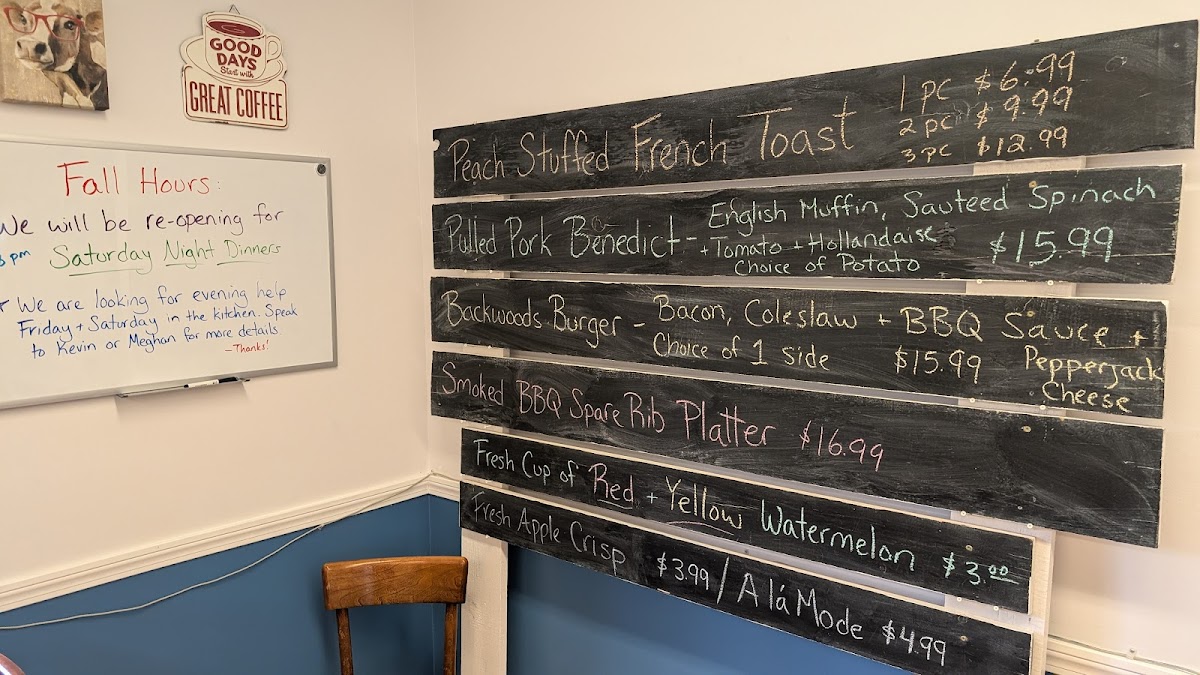 GOOD
DAYS
Start with
GREAT COFFEE
Fall Hours:
We will be re-opening for
pm Saturday Night Dinners
We are looking for evening help
Friday + Saturday in the kitchen. Speak
to Kevin or Meghan for more details.
-Thanks!
Peach Stuffed French Toast
1 pc $6.99
2 pc $9.99
3 pc $12.99
Pulled Pork Benedict - English Muffin, Sauteed Spinach
+ Tomato + Hollandaise
Choice of Potato
$15.99
Backwoods Burger - Bacon, Coleslaw + BBQ Sauce +
Pepperjack
Cheese
Choice of 1 side $15.99
Smoked BBQ Spare Rib Platter $16.99
Fresh Cup of Red + Yellow Watermelon $3.00
Fresh Apple Crisp $3.99 / A lá Mode $4.99